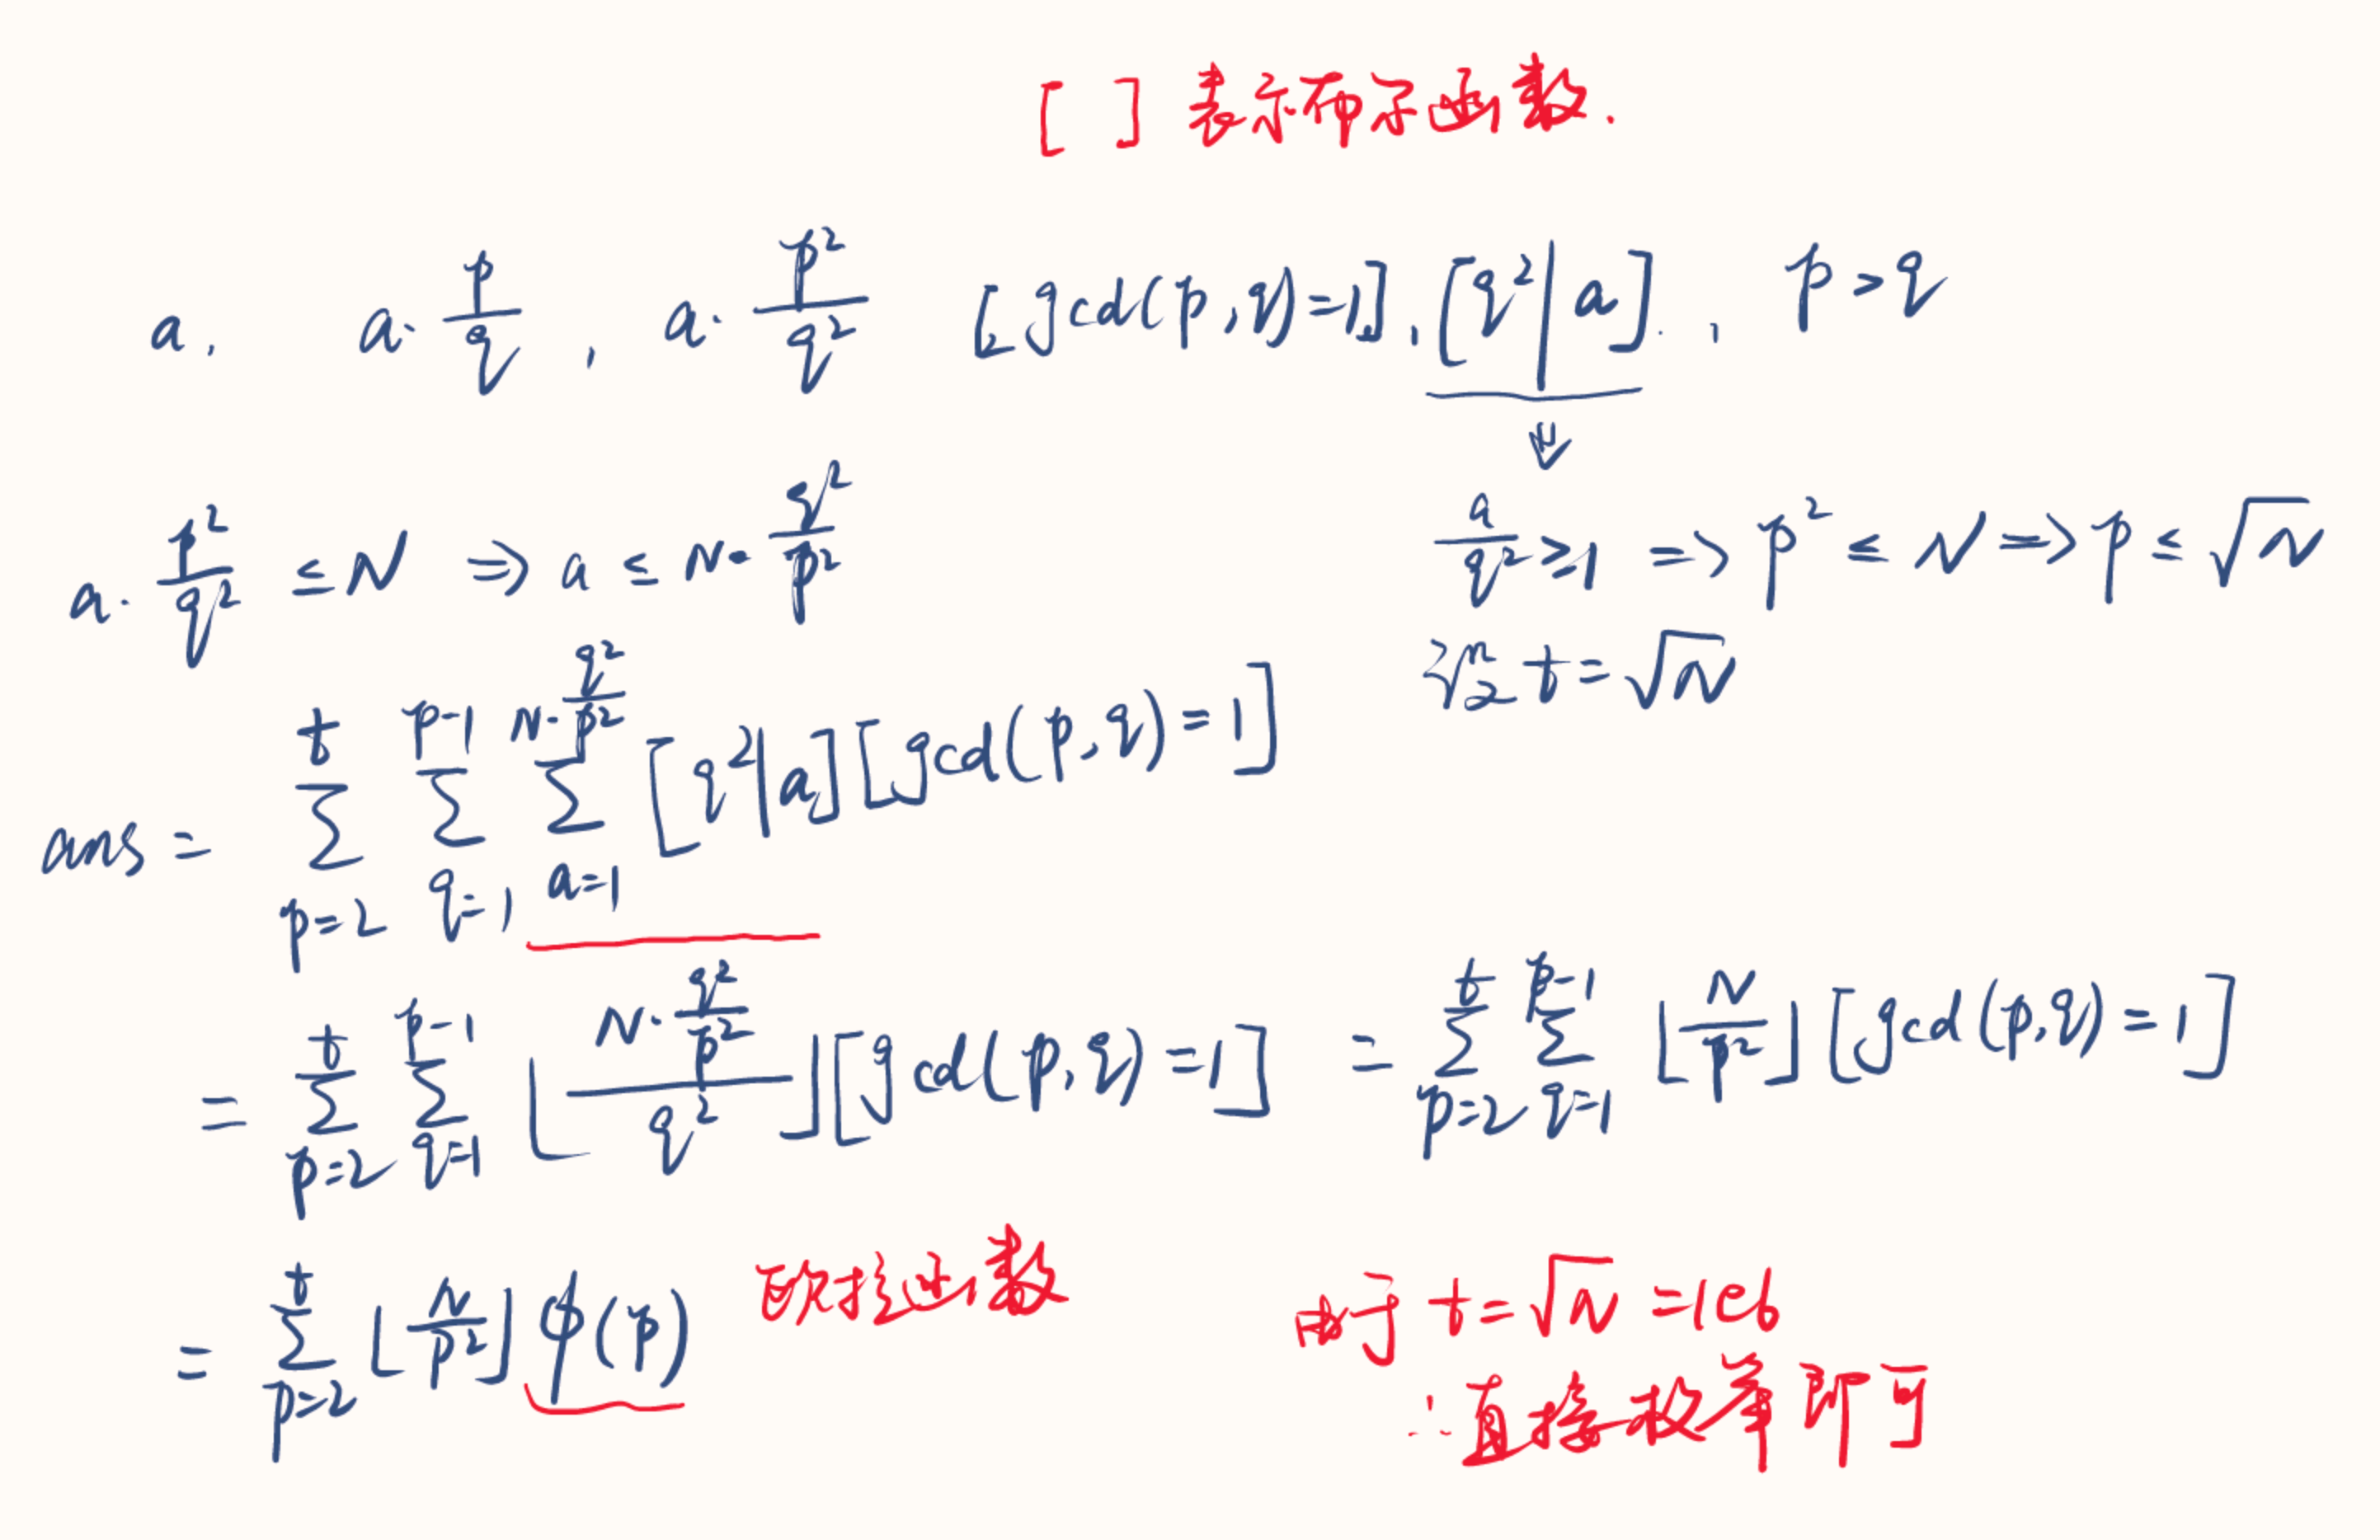 [ ] 表示布尔函数.
a, a·p/q, a·p²/q² [gcd(p,q)=1], [q²|a]., p>q
⇓
a·p²/q² ≤ N ⇒ a ≤ N·q²/p² a/q² ≥ 1 ⇒ p² ≤ N ⇒ p ≤ √N
记 t=√N
ans = ∑_{p=2}^{t} ∑_{q=1}^{p-1} ∑_{a=1}^{N·q²/p²} [q²|a][gcd(p,q)=1]
= ∑_{p=2}^{t} ∑_{q=1}^{p-1} ⌊(N·q²/p²)/q²⌋[gcd(p,q)=1] = ∑_{p=2}^{t} ∑_{q=1}^{p-1} ⌊N/p²⌋[gcd(p,q)=1]
= ∑_{p=2}^{t} ⌊N/p²⌋φ(p) 欧拉函数 由于 t=√N=1e6
∴直接枚举即可